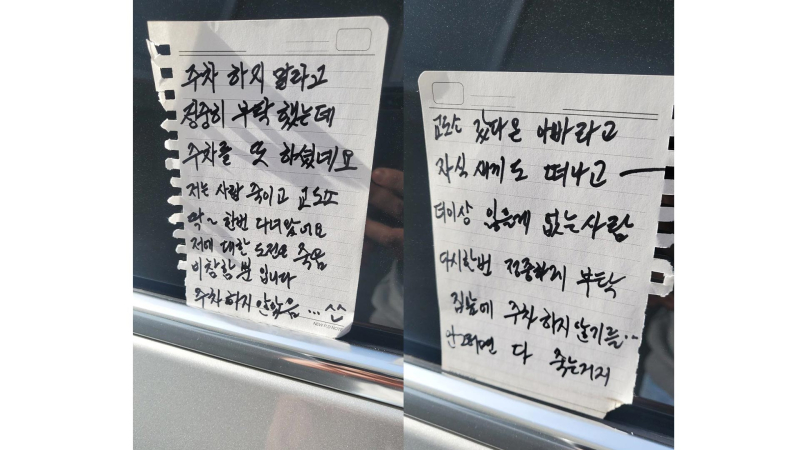 주차 하지 말라고
정중히 부탁 했는데
주차를 또 하셨네요
저는 사람 죽이고 교도소
딱~ 한번 다녀왔어요
저에 대한 도전은 죽음
비참함뿐 입니다
주차하지 않았음 ... ^^
교도소 갔다온 아빠라고
자식 새끼도 떠나고
더이상 잃을게 없는사람
다시한번 정중하게 부탁
집앞에 주차하지않기를..
안그러면 다 죽는거지